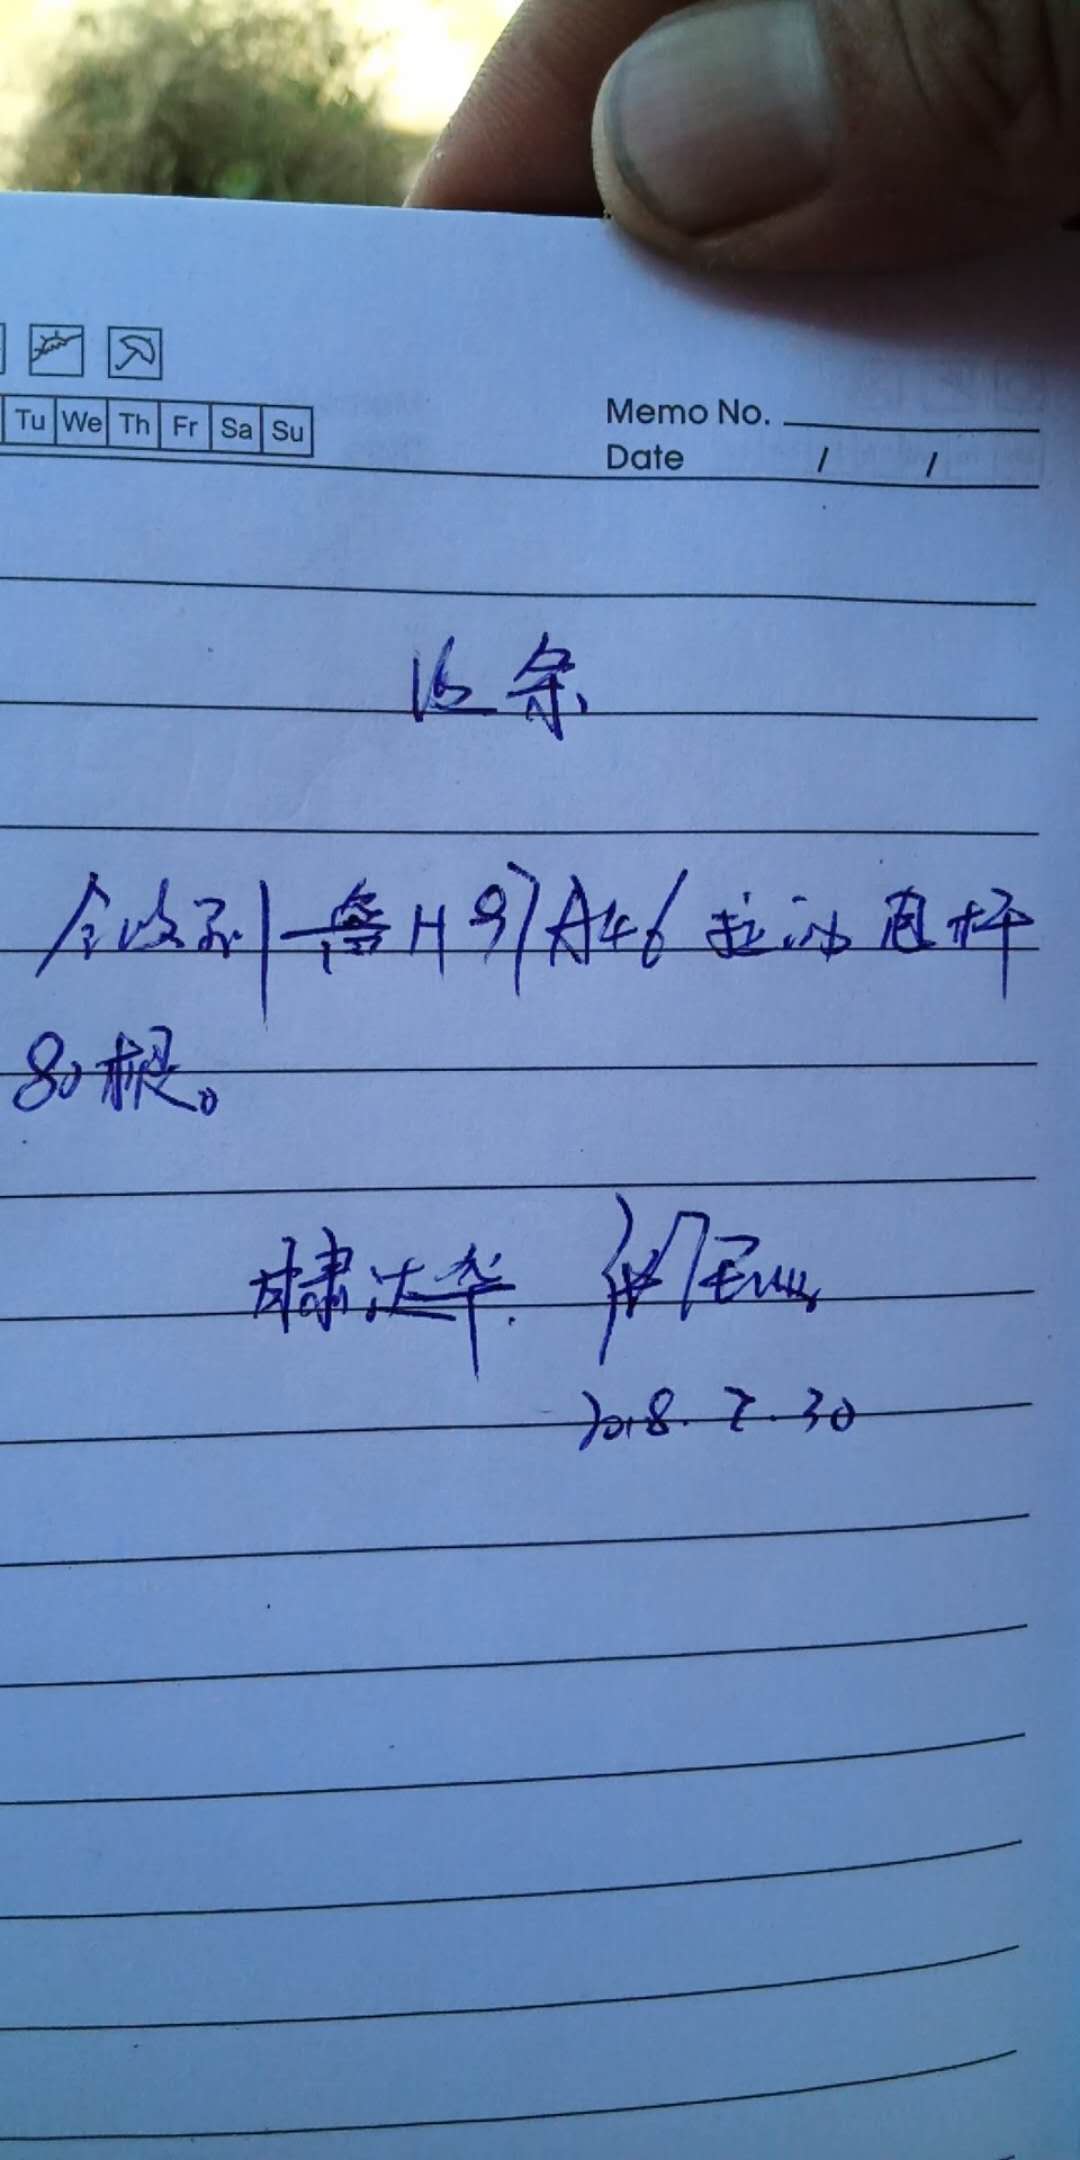 Tu We Th Fr Sa Su
Memo No.
Date / /
收条
今收到鲁H97A46拉油电杆
80根。
甘肃达华.
2018.7.30